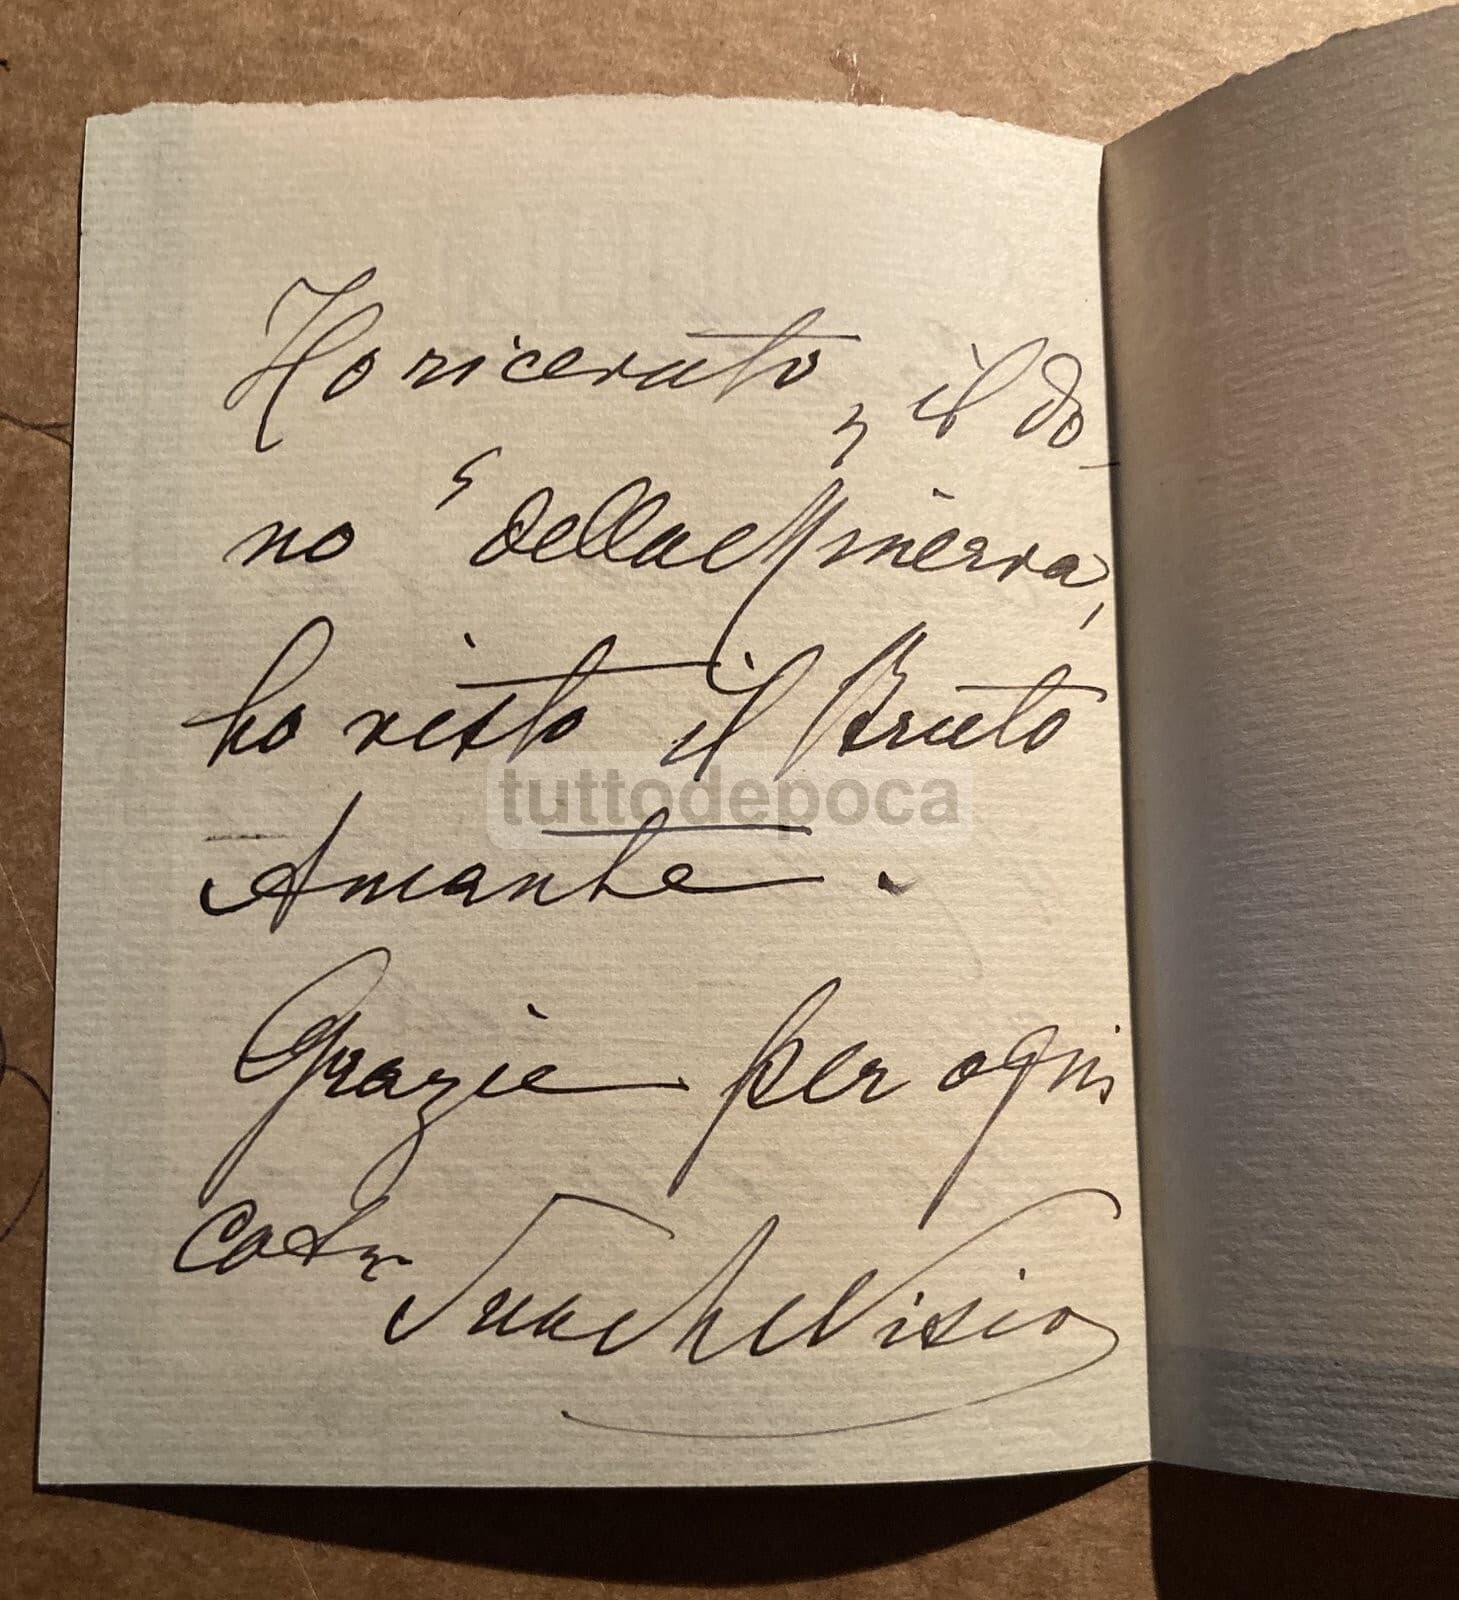 Ho ricevuto, il do-
no "della Minerva,
ho visto il Bruto
Amante.
Grazie per ogni
cosa
tuttodepoca